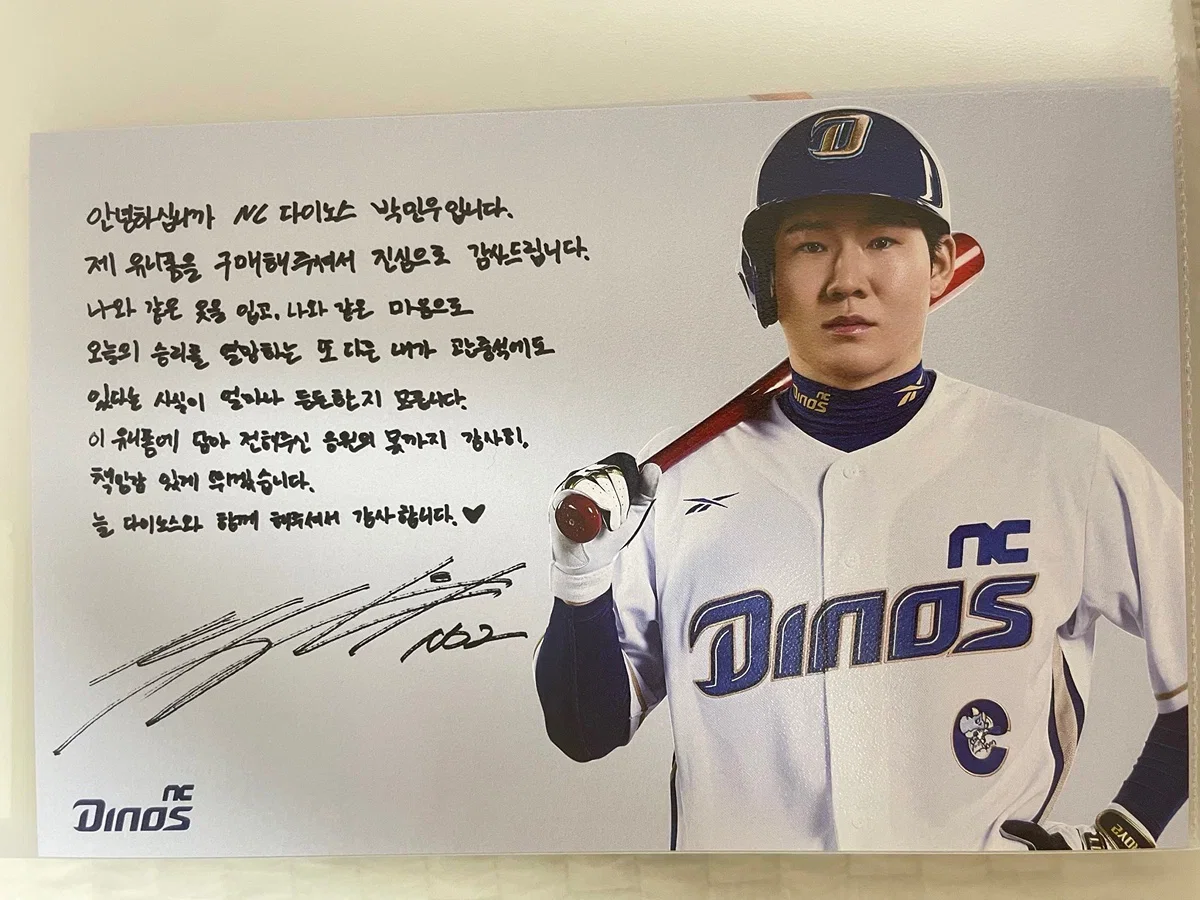 안녕하십니까 NC 다이노스 박민우입니다.
제 유니폼을 구매해주셔서 진심으로 감사드립니다.
나와 같은 옷을 입고, 나와 같은 마음으로
오늘의 승리를 열망하는 또 다른 내가 관중석에도
있다는 사실이 얼마나 든든한지 모릅니다.
이 유니폼에 담아 전해주신 응원의 몫까지 감사히,
책임감 있게 뛰겠습니다.
늘 다이노스와 함께 해주셔서 감사합니다.♥
No2
nc
DINOS
D
nc
DINOS
nc
DINOS
C